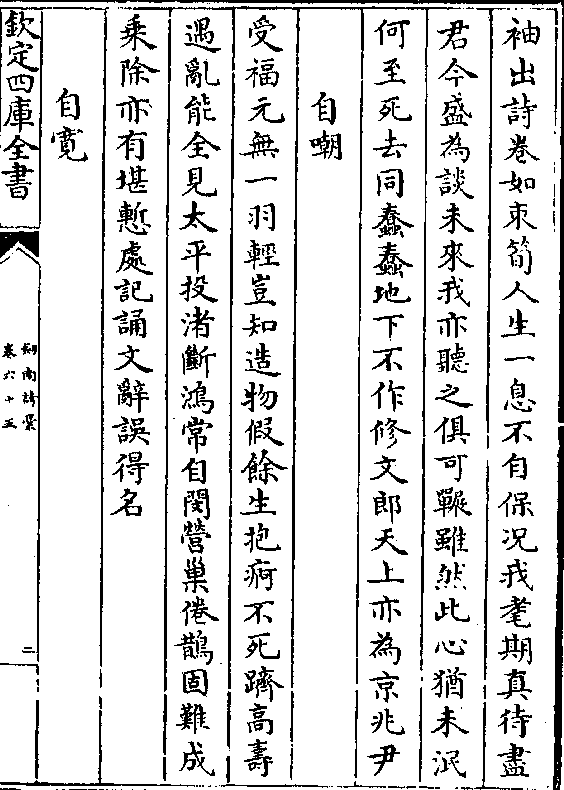 袖出詩卷如束筍人生一息不自保况我耄期真待盡
君今盛為談未來我亦聽之俱可冁雖然此心猶未泯
何至死去同蠢蠢地下不作修文郎天上亦為京兆尹
自嘲
受福元無一羽輕豈知造物假餘生抱痾不死躋高壽
遇亂能全見太平投渚斷鴻常自閔營巢倦鵲固難成
乘除亦有堪慙處記誦文辭誤得名
自寛
欽定四庫全書
劒南詩槀
卷六十五
二